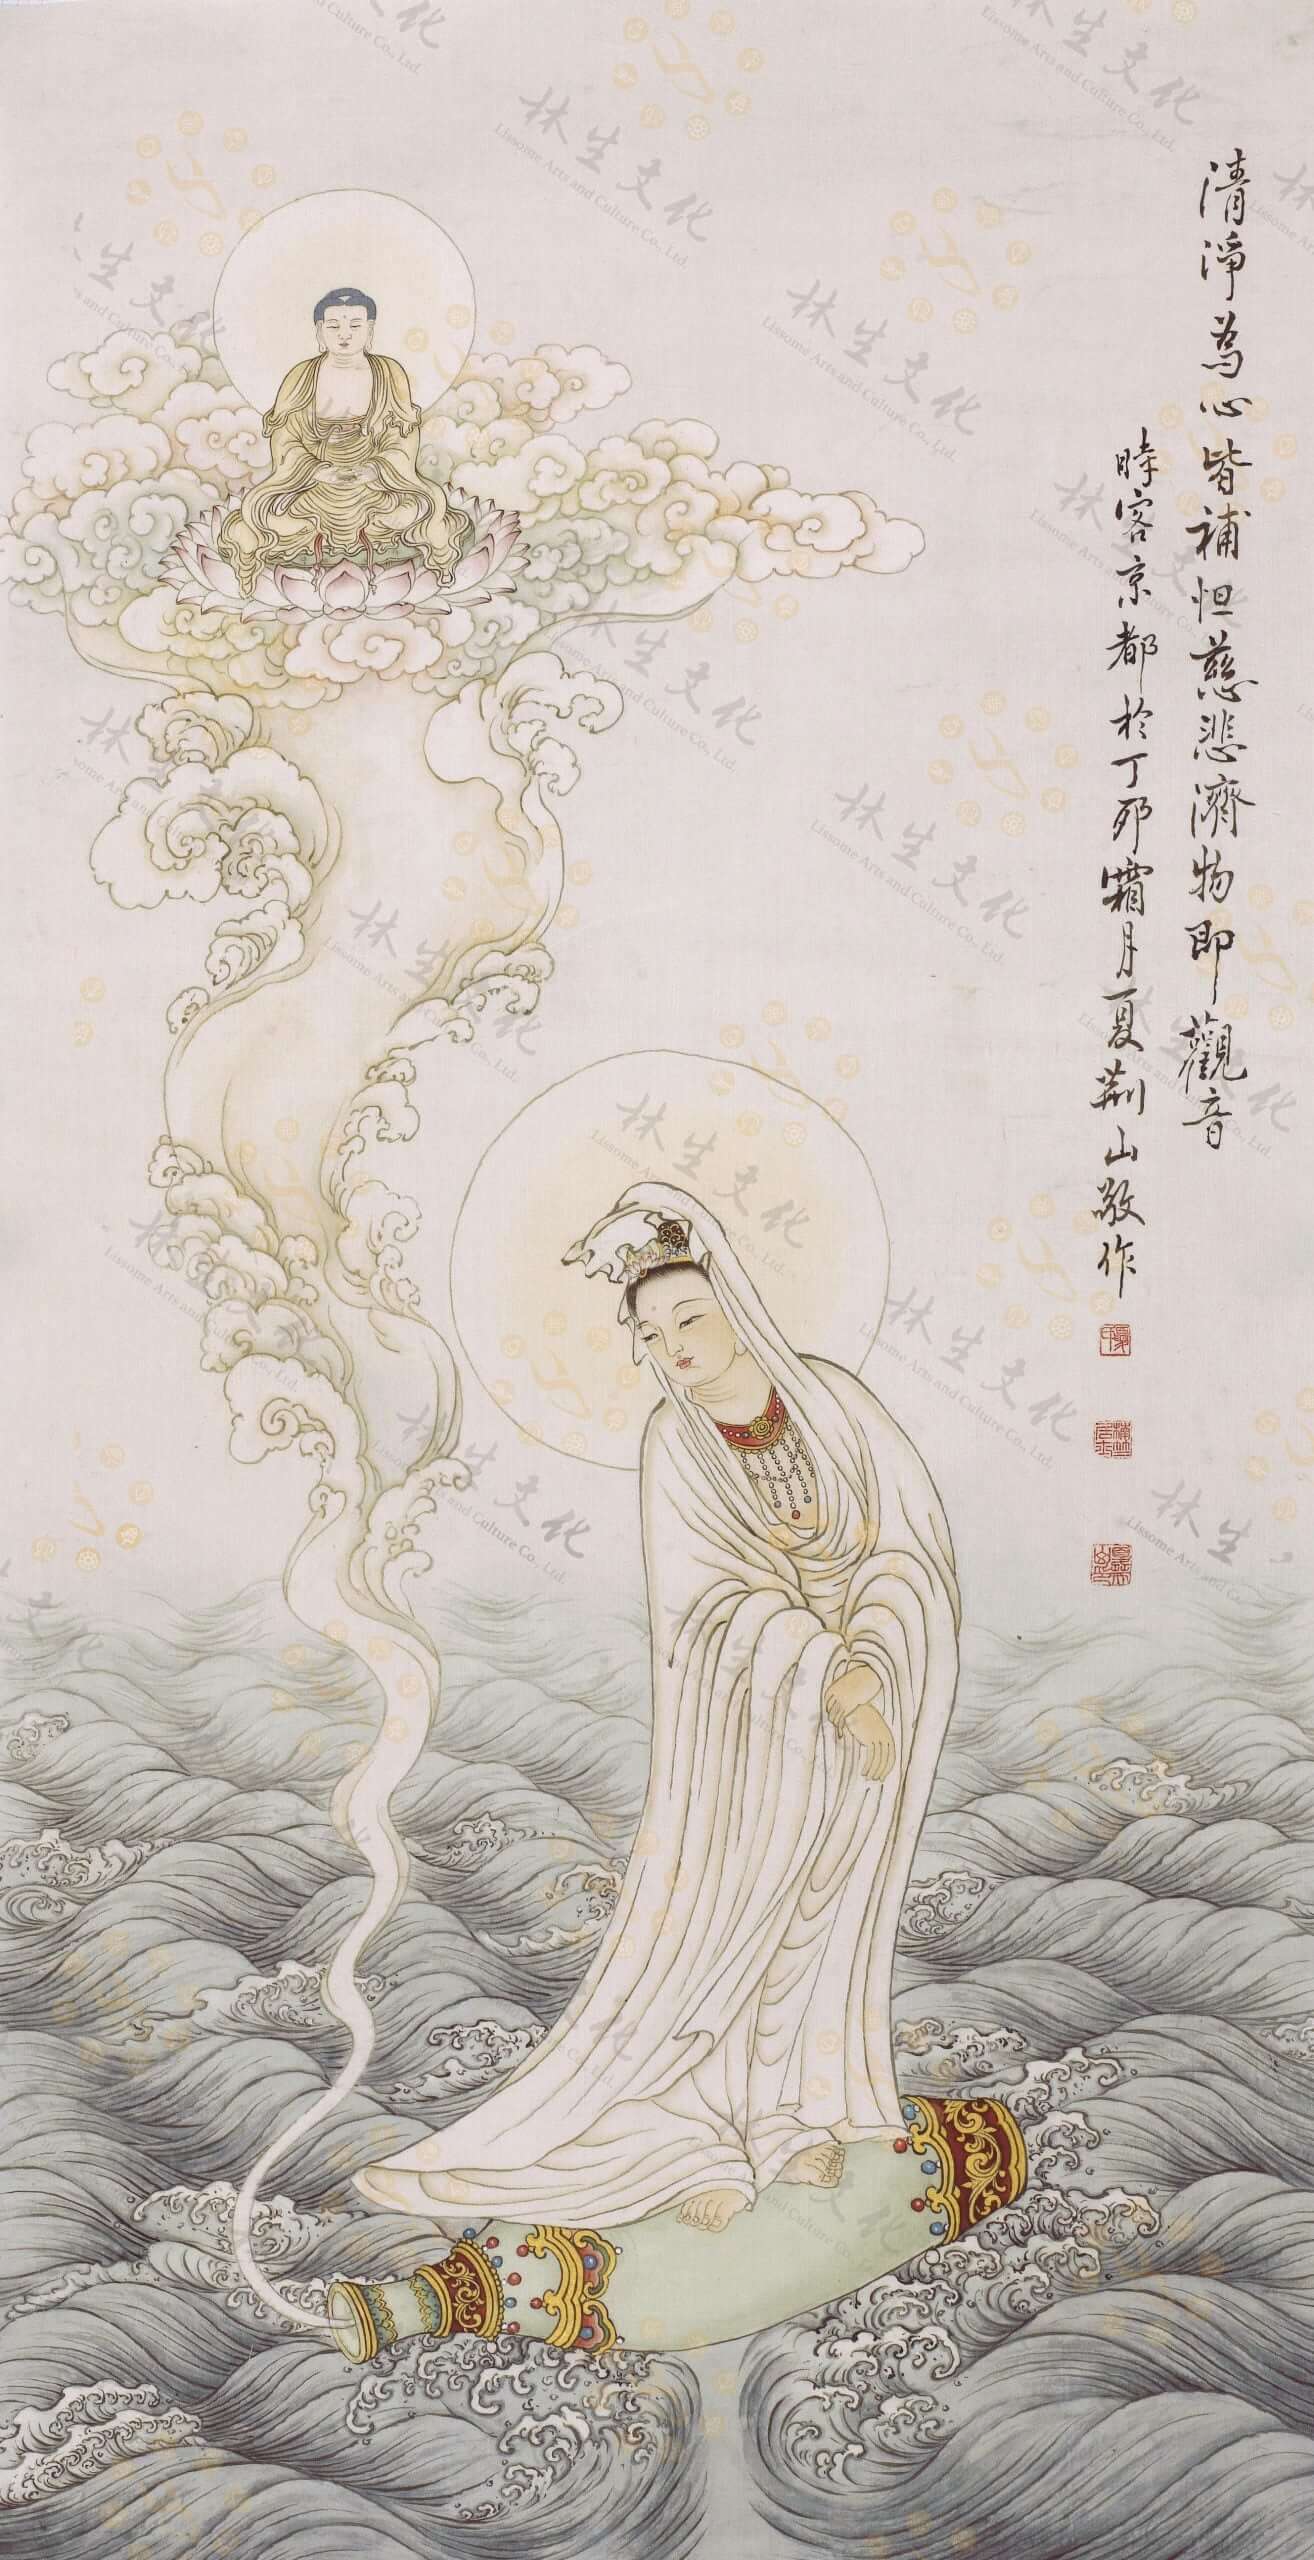 清淨為心皆補怛慈悲濟物即觀音
時客京都於丁卯霜月夏荊山敬作
林生文化
Lissome Arts and Culture Co., Ltd.